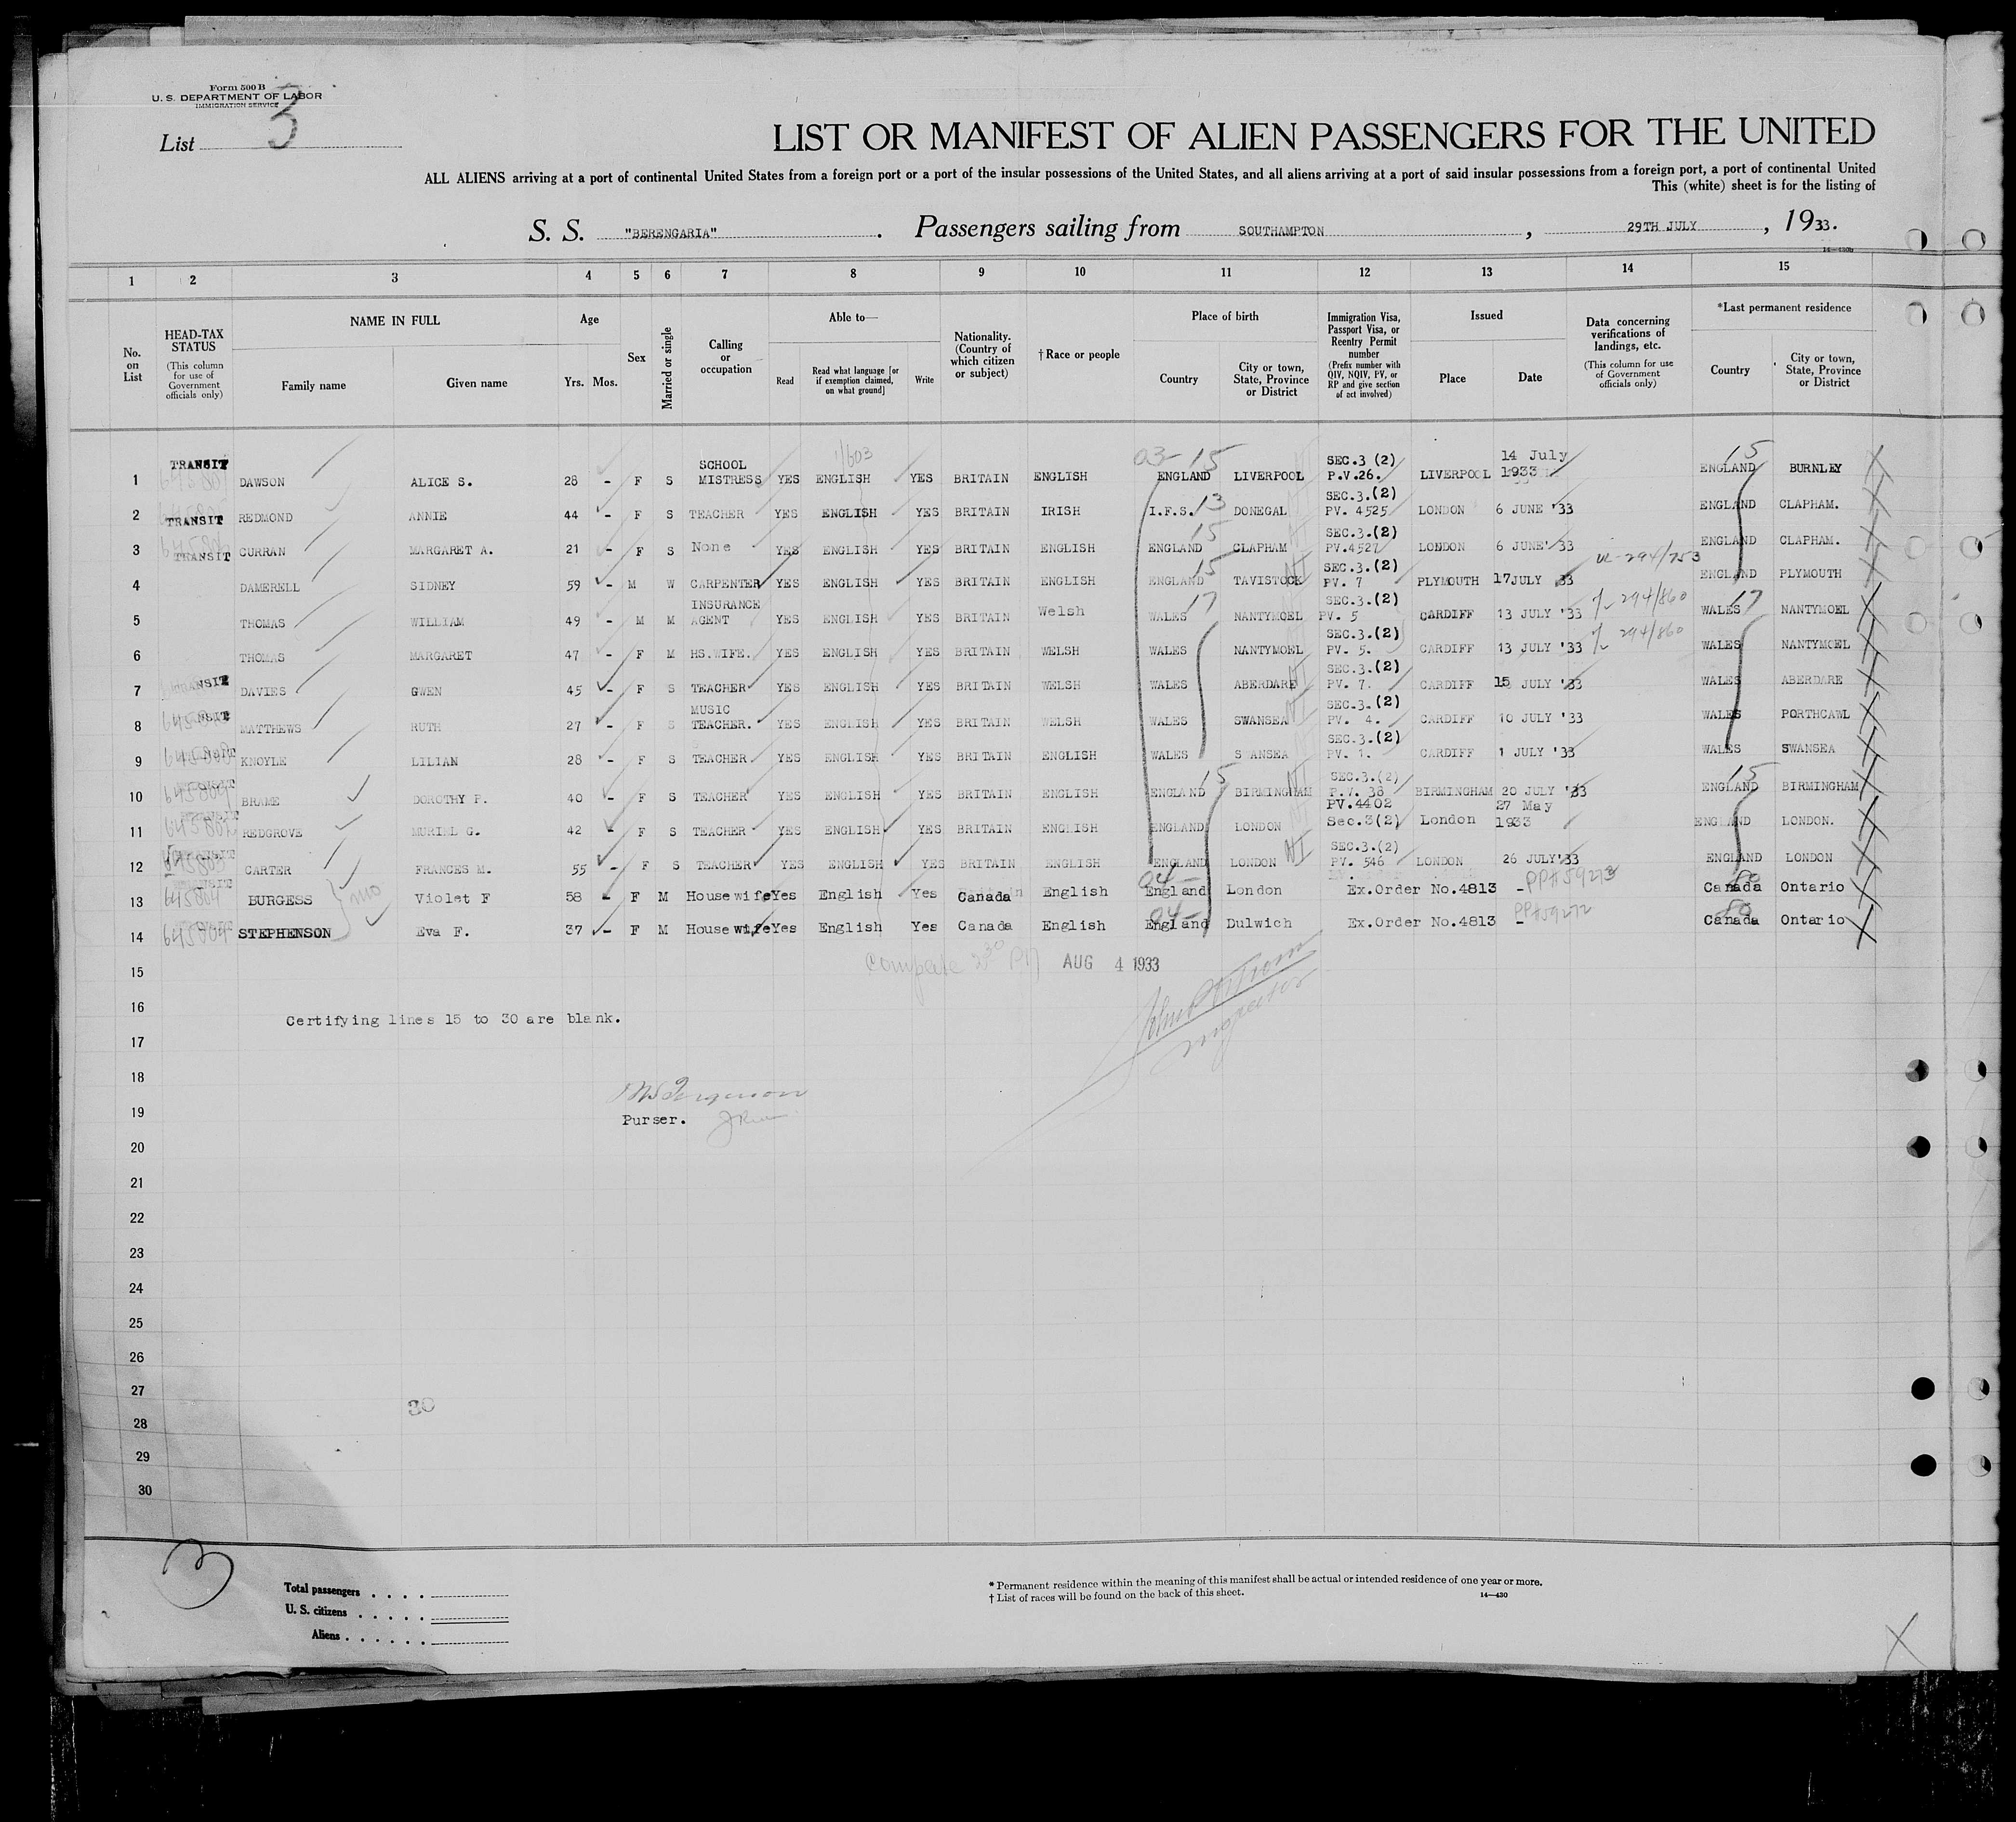 Form 500 B
U. S. DEPARTMENT OF LABOR
IMMIGRATION SERVICE
List 3
LIST OR MANIFEST OF ALIEN PASSENGERS FOR THE UNITED
ALL ALIENS arriving at a port of continental United States from a foreign port or a port of the insular possessions of the United States, and all aliens arriving at a port of said insular possessions from a foreign port, a port of continental United
This (white) sheet is for the listing of
S. S. "BERENGARIA" . Passengers sailing from SOUTHAMPTON , 29TH JULY , 1933.
14—430b
1 2 3 4 5 6 7 8 9 10 11 12 13 14 15
No. on List
HEAD-TAX STATUS (This column for use of Government officials only)
NAME IN FULL Family name Given name
Age Yrs. Mos.
Sex
Married or single
Calling or occupation
Able to— Read Read what language [or if exemption claimed, on what ground] Write
Nationality. (Country of which citizen or subject)
† Race or people
Place of birth Country City or town, State, Province or District
Immigration Visa, Passport Visa, or Reentry Permit number (Prefix number with QIV, NQIV, PV, or RP and give section of act involved)
Issued Place Date
Data concerning verifications of landings, etc. (This column for use of Government officials only)
*Last permanent residence Country City or town, State, Province or District
03- 15 15
1 TRANSIT DAWSON ALICE S. 28 - F S SCHOOL MISTRESS YES ENGLISH YES BRITAIN ENGLISH ENGLAND LIVERPOOL SEC.3 (2) P.V.26. LIVERPOOL 14 July 1933 ENGLAND BURNLEY
2 TRANSIT REDMOND ANNIE 44 - F S TEACHER YES ENGLISH YES BRITAIN IRISH I.F.S. 13 DONEGAL SEC.3.(2) PV. 4525 LONDON 6 JUNE '33 ENGLAND CLAPHAM.
3 TRANSIT CURRAN MARGARET A. 21 - F S None YES ENGLISH YES BRITAIN ENGLISH ENGLAND 15 CLAPHAM SEC.3.(2) PV.4527 LONDON 6 JUNE' 33 ENGLAND CLAPHAM.
4 DAMERELL SIDNEY 59 - M W CARPENTER YES ENGLISH YES BRITAIN ENGLISH ENGLAND 15 TAVISTOCK SEC.3.(2) PV. 7 PLYMOUTH 17JULY 33 294/753 ENGLAND PLYMOUTH
5 THOMAS WILLIAM 49 - M M INSURANCE AGENT YES ENGLISH YES BRITAIN Welsh WALES 17 NANTYMOEL SEC.3.(2) PV. 5 CARDIFF 13 JULY '33 294/860 WALES 17 NANTYMOEL
6 THOMAS MARGARET 47 - F M HS.WIFE. YES ENGLISH YES BRITAIN WELSH WALES NANTYMOEL SEC.3.(2) PV. 5. CARDIFF 13 JULY '33 294/860 WALES NANTYMOEL
7 TRANSIT DAVIES GWEN 45 - F S TEACHER YES ENGLISH YES BRITAIN WELSH WALES ABERDARE SEC.3.(2) PV. 7. CARDIFF 15 JULY '33 WALES ABERDARE
8 MATTHEWS RUTH 27 - F S MUSIC TEACHER. YES ENGLISH YES BRITAIN WELSH WALES SWANSEA SEC.3.(2) PV. 4. CARDIFF 10 JULY '33 WALES PORTHCAWL
9 KNOYLE LILIAN 28 - F S TEACHER YES ENGLISH YES BRITAIN ENGLISH WALES SWANSEA SEC.3.(2) PV. 1. CARDIFF 1 JULY '33 WALES SWANSEA
10 BRAME DOROTHY P. 40 - F S TEACHER YES ENGLISH YES BRITAIN ENGLISH ENGLAND 15 BIRMINGHAM SEC.3.(2) P.V. 38 BIRMINGHAM 20 JULY '33 ENGLAND 15 BIRMINGHAM
11 REDGROVE MURIEL G. 42 - F S TEACHER YES ENGLISH YES BRITAIN ENGLISH ENGLAND LONDON PV.4402 Sec.3(2) London 27 May 1933 ENGLAND LONDON.
12 CARTER FRANCES M. 55 - F S TEACHER YES ENGLISH YES BRITAIN ENGLISH ENGLAND LONDON SEC.3.(2) PV. 546 LONDON 26 JULY'33 ENGLAND LONDON
13 BURGESS Violet F 58 - F M Housewife Yes English Yes Canada English 04- England London Ex.Order No.4813 - Canada Ontario
14 STEPHENSON Eva F. 37 - F M Housewife Yes English Yes Canada English 04- England Dulwich Ex.Order No.4813 - Canada Ontario
15 AUG 4 1933
16
Certifying lines 15 to 30 are blank.
17
18
19 Purser.
20
21
22
23
24
25
26
27
30
28
29
30
3
Total passengers . . . .
U. S. citizens . . . . .
Aliens . . . . . .
* Permanent residence within the meaning of this manifest shall be actual or intended residence of one year or more.
† List of races will be found on the back of this sheet.
14—430